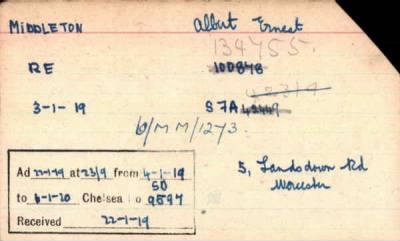 MIDDLETON Albert Ernest
134755.
RE 100878
42319
3-1-19 S7A 42449
6/MM/1273
Ad 22-1-19 at 23/9 from 4-1-19
50
to 6-1-20 Chelsea No 9597
Received 22-1-19
5, Landsdown Rd
Worcester